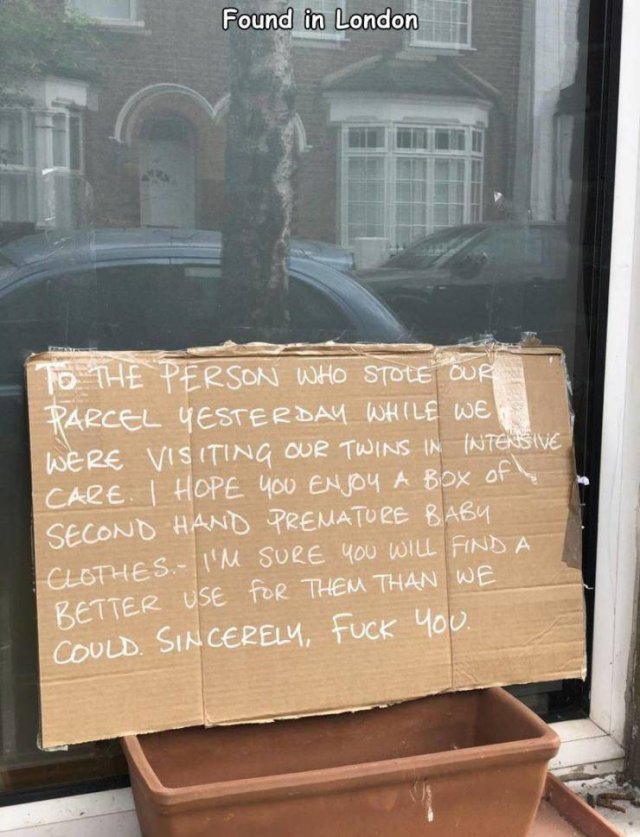 Found in London
TO THE PERSON WHO STOLE OUR
PARCEL YESTERDAY WHILE WE
WERE VISITING OUR TWINS IN INTENSIVE
CARE. I HOPE YOU ENJOY A BOX OF
SECOND HAND PREMATURE BABY
CLOTHES.- I'M SURE YOU WILL FIND A
BETTER USE FOR THEM THAN WE
COULD. SINCERELY, FUCK YOU.